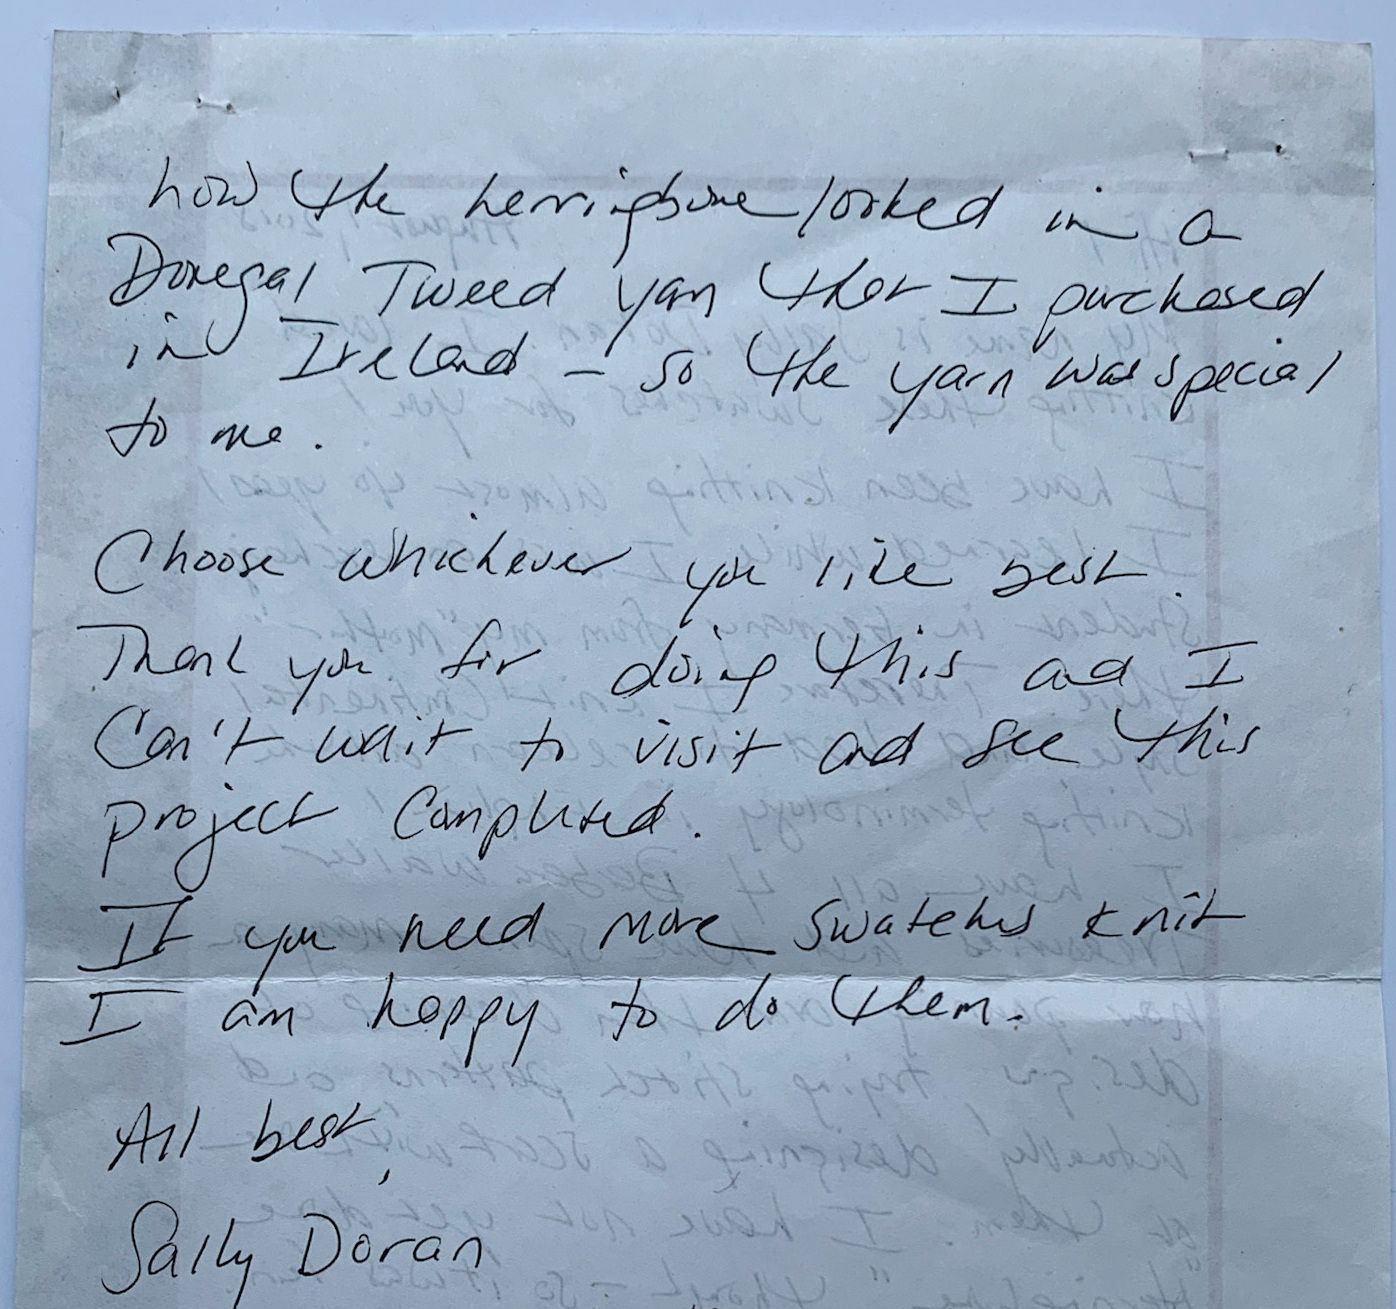 how the herringbone looked in a
Donegal Tweed yarn that I purchased
in Ireland - so the yarn was special
to me.
Choose whichever you like best.
Thank you for doing this and I
Can't wait to visit and see this
project completed.
If you need more swatches knit
I am happy to do them.
All best,
Sally Doran